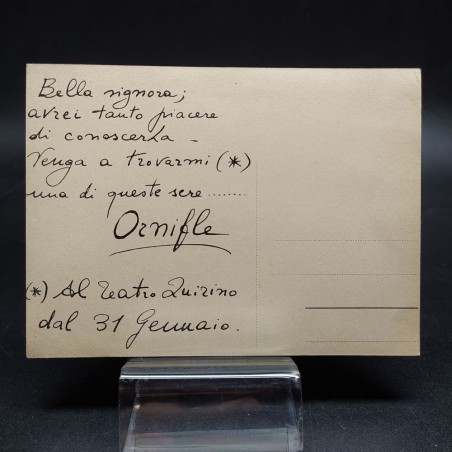 Bella signora;
avrei tanto piacere
di conoscerla -
Venga a trovarmi (*)
una di queste sere ........
Ornifle
(*) Al Teatro Quirino
dal 31 Gennaio.